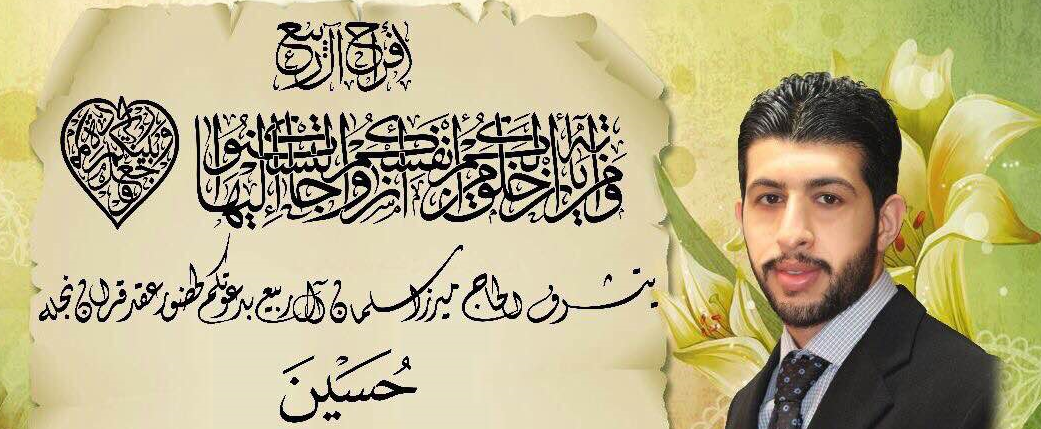 أفراح آل ربيع
ومن آياته أن خلق لكم من أنفسكم أزواجا لتسكنوا إليها وجعل بينكم مودة ورحمة
يتشرف الحاج ميرزا سلمان آل ربيع بدعوتكم لحضور عقد قران نجله
حُسَيْنَ